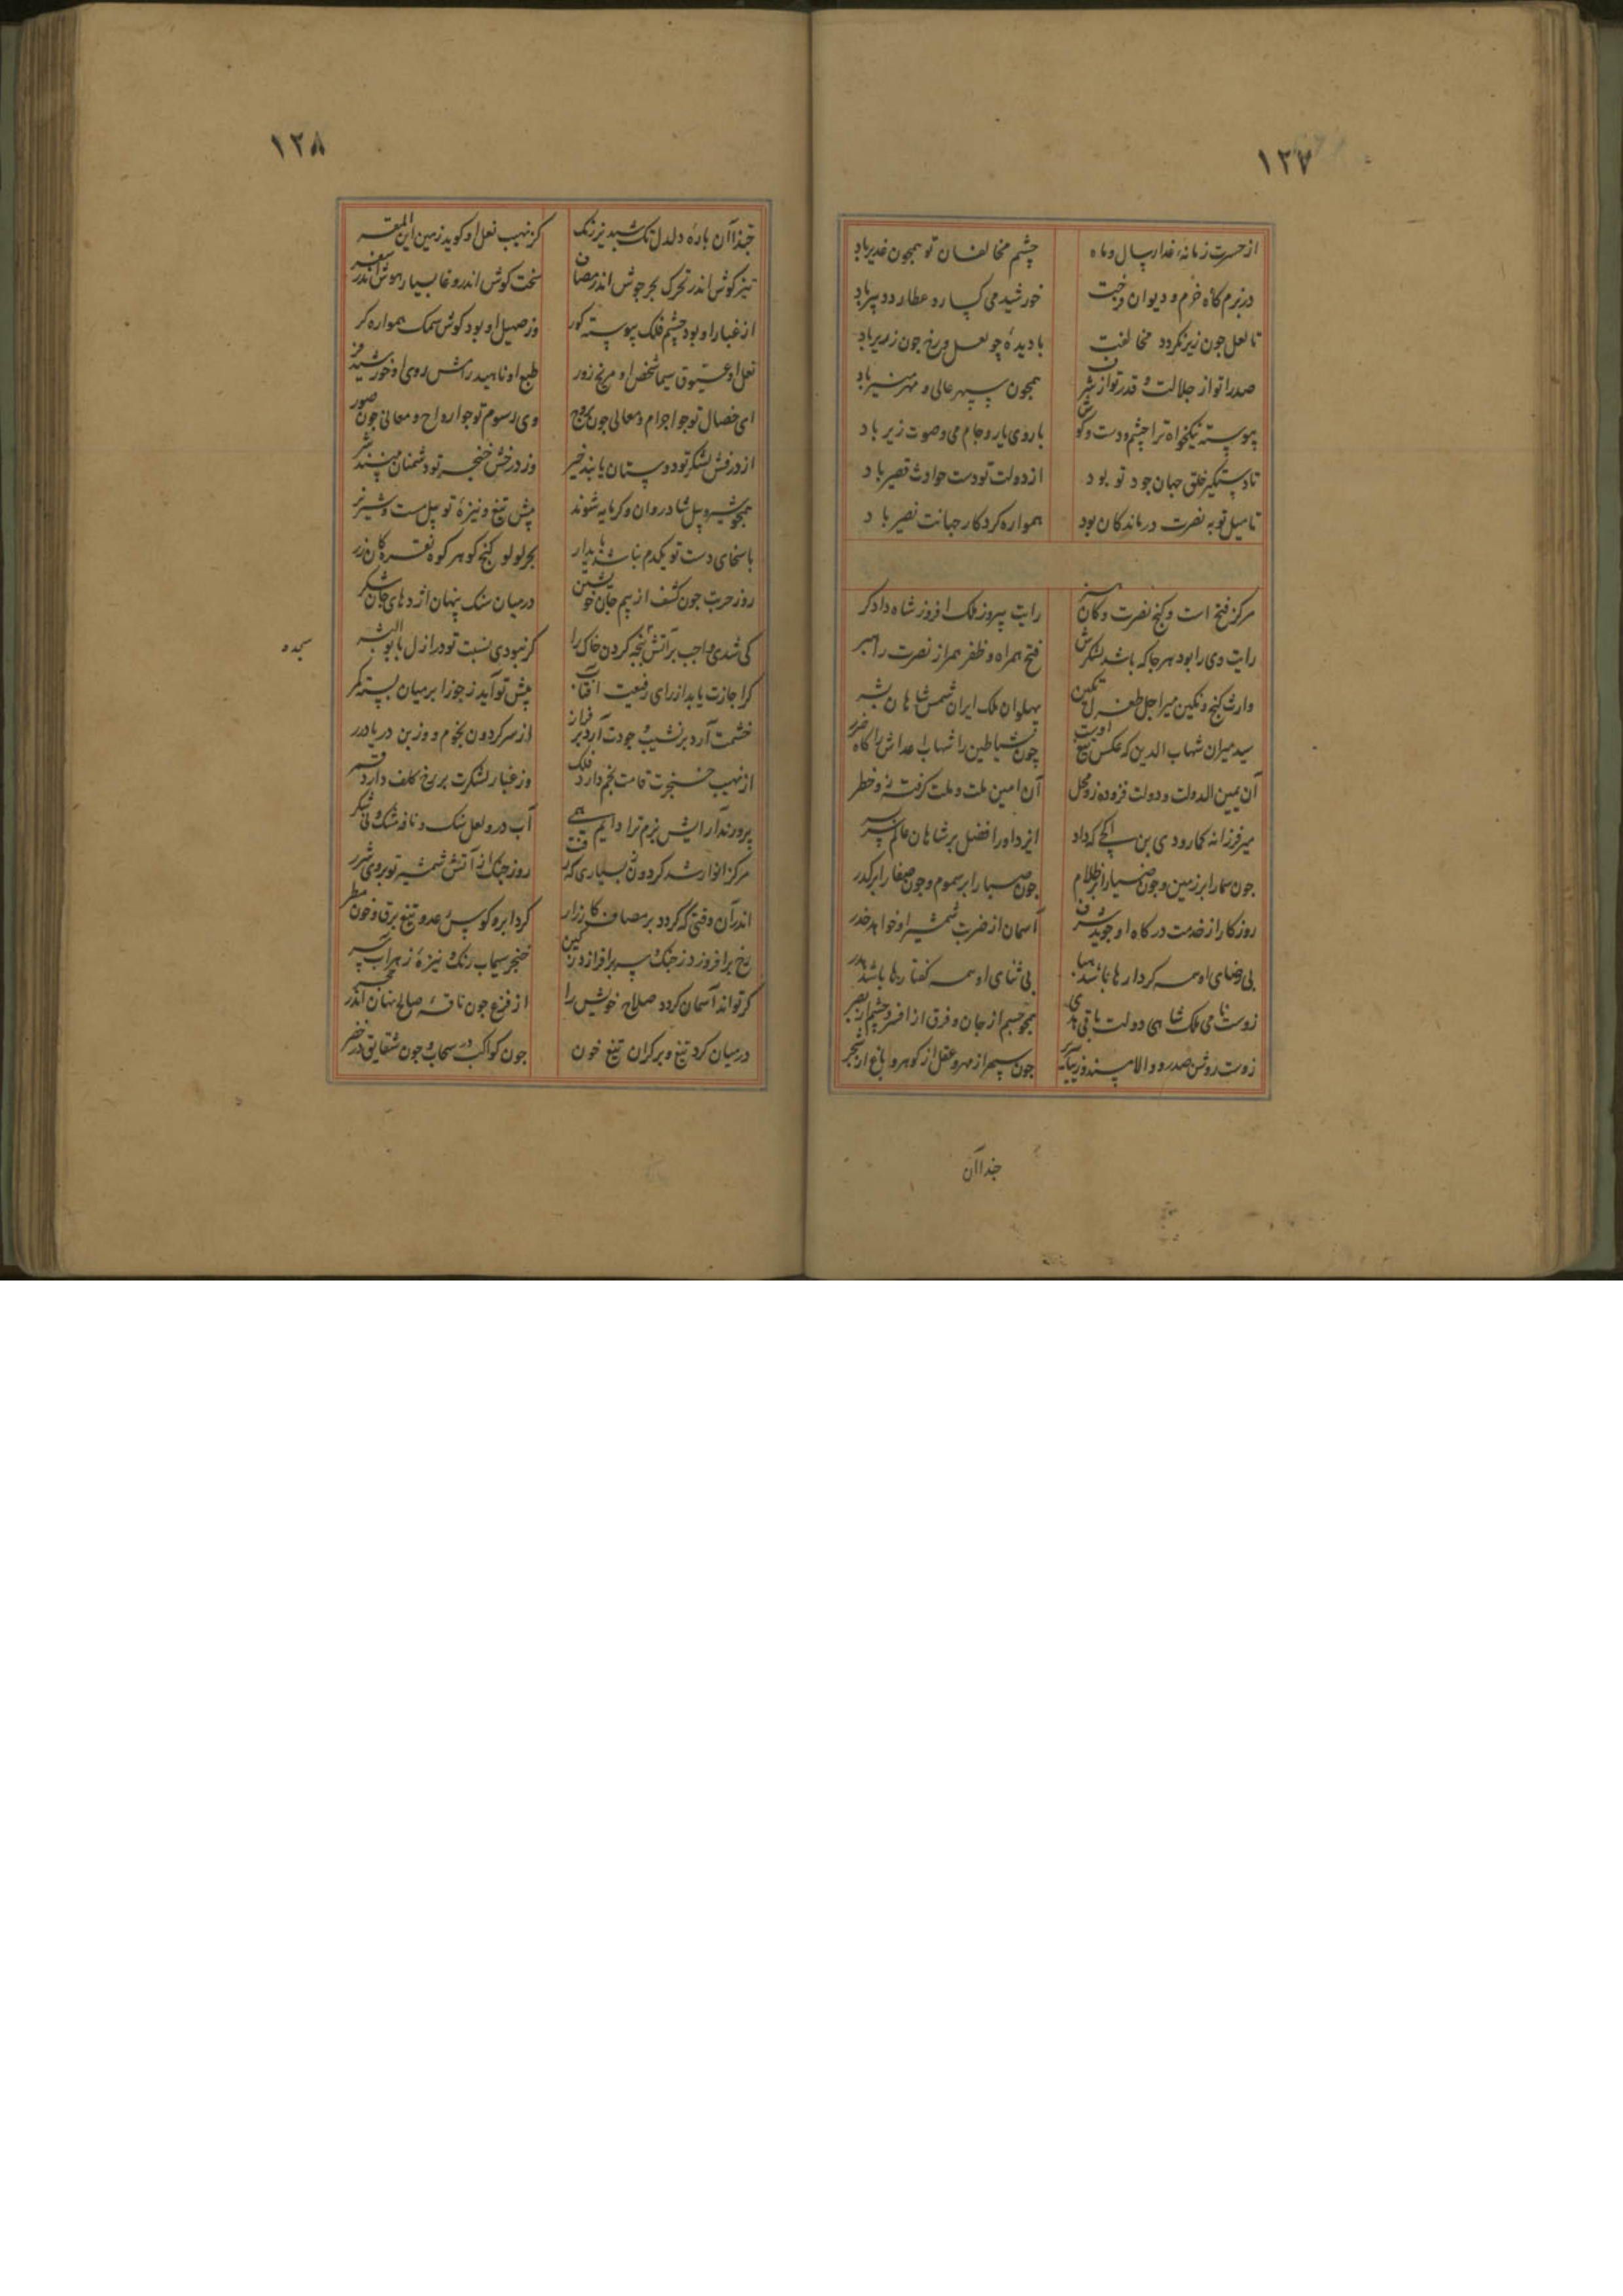 ١٢٧
از حسرت زمانه غدار سال و ماه چشم مخالفان تو همچون غدیر باد
در بزم گاه خرم و دیوان فرخت خورشید می گسار و عطارد دبیر باد
تا لعل چون زریر نگردد مخالفت با دیده چو لعل و رخ چون زریر باد
صدرا تو از جلالت و قدر تو از شرف همچون سپهر عالی و مهر منیر باد
پیوسته نیکخواه ترا چشم و دست و گوش با روی یار و جام می و صوت زیر باد
تا دستگیر خلق جهان جود تو بود از دولت تو دست حوادث قصیر باد
تا میل تو به نصرت درماندکان بود همواره کردکار جهانت نصیر باد
مرکز فتح است و کنج نصرت و کان هنر رایت پیروز ملک افروز شاه دادکر
رایت وی را بود هر جا که باشد لشکرش فتح همراه و ظفر همراز نصرت راهبر
وارث کنج و نکین میر اجل طغرل تکین پهلوان ملک ایران شمس شاهان بشر
سید میران شهاب الدین که عکس تیغ اوست چون شیاطین را شهاب اعداش را کاه ضرر
آن یمین الدولت و دولت فزوده زو محل آن امین ملت و ملت کرفته زو خطر
میر فرزانه که داد ایزد او را فضل بر شاهان عالم سربسر
چون سما را بر زمین و چون ضیا را بر ظلام چون صبا را بر سموم و چون صفا را بر کدر
روزکار از خدمت درکاه او جوید شرف آسمان از ضربت شمشیر او خواهد حذر
بی رضای او همه کردارها باشد هبا بی ثنای او همه کفتارها باشد هدر
زوست نامی ملک شاهی دولت باقی هدی همچو جسم از جان و فرق از افسر و چشم از بصر
زوست روشن صدر و والا مسند و زیبا سریر چون سپهر از مهر و عقل از کوهر و باغ از شجر
حبذا آن
١٢٨
حبذا آن باره دلدل تک شبدیز رنک کز نهیب نعل او کوید زمین این المفر
تیز کوش اندر تحرک بحر جوش اندر مصاف سخت کوش اندر وغا بسیار هوش اندر سفر
از غبار او بود چشم فلک پیوسته کور وز صهیل او بود کوش سمک همواره کر
نعل او عیوق سیما شخص او مریخ زور طبع او ناهید رامش روی او خورشید فر
ای خصال تو چو اجرام و معالی چون بروج وی رسوم تو چو ارواح و معانی چون صور
از درفش لشکر تو دوستان یابند خیر وز درخش خنجر تو دشمنان بینند شر
همچو شیر و پیل شادروان و کرمابه شوند پیش تیغ و نیزه تو پیل مست و شیر نر
با سخای دست تو یکدم نباشد پایدار بحر لولو کنج کوهر کوه نقره کان زر
روز حرب چون کشف از بیم جان خویشتن در میان سنک پنهان اژدهای جان شکر
کی شدی واجب بر آتش سجده کردن خاک را کر نبودی نسبت تو در ازل با بوالبشر
سجده
کر اجازت یابد از رای رفیعت آفتاب پیش تو آید ز جوزا بر میان بسته کمر
خشمت آرد بر نشیب و جودت آرد بر فراز از سر کردون نجوم و وز بن دریا درر
از نهیب خنجرت قامت بخم دارد فلک وز غبار لشکرت بر رخ کلف دارد قمر
پرورند آرایش بزم ترا دایم همی آب در و لعل سنک و نافه مشک و نی شکر
مرکز انوار شد کردون ز بسیاری که رفت روز جنک از آتش شمشیر تو بر وی شرر
اندر آن وقتی که کردد بر مصاف کارزار کرد ابر و کوس رعد و تیغ برق و خون مطر
رخ برافروزد ز جنک و سر برافرازد ز کین خنجر سیماب رنک و نیزه زهراب سر
کر تواند آسمان کردد صلاح خویش را از فزع چون ناقه صالح نهان اندر حجر
در میان کرد تیغ و بر کران تیغ خون چون کواکب در سحاب و چون شقایق در خضر